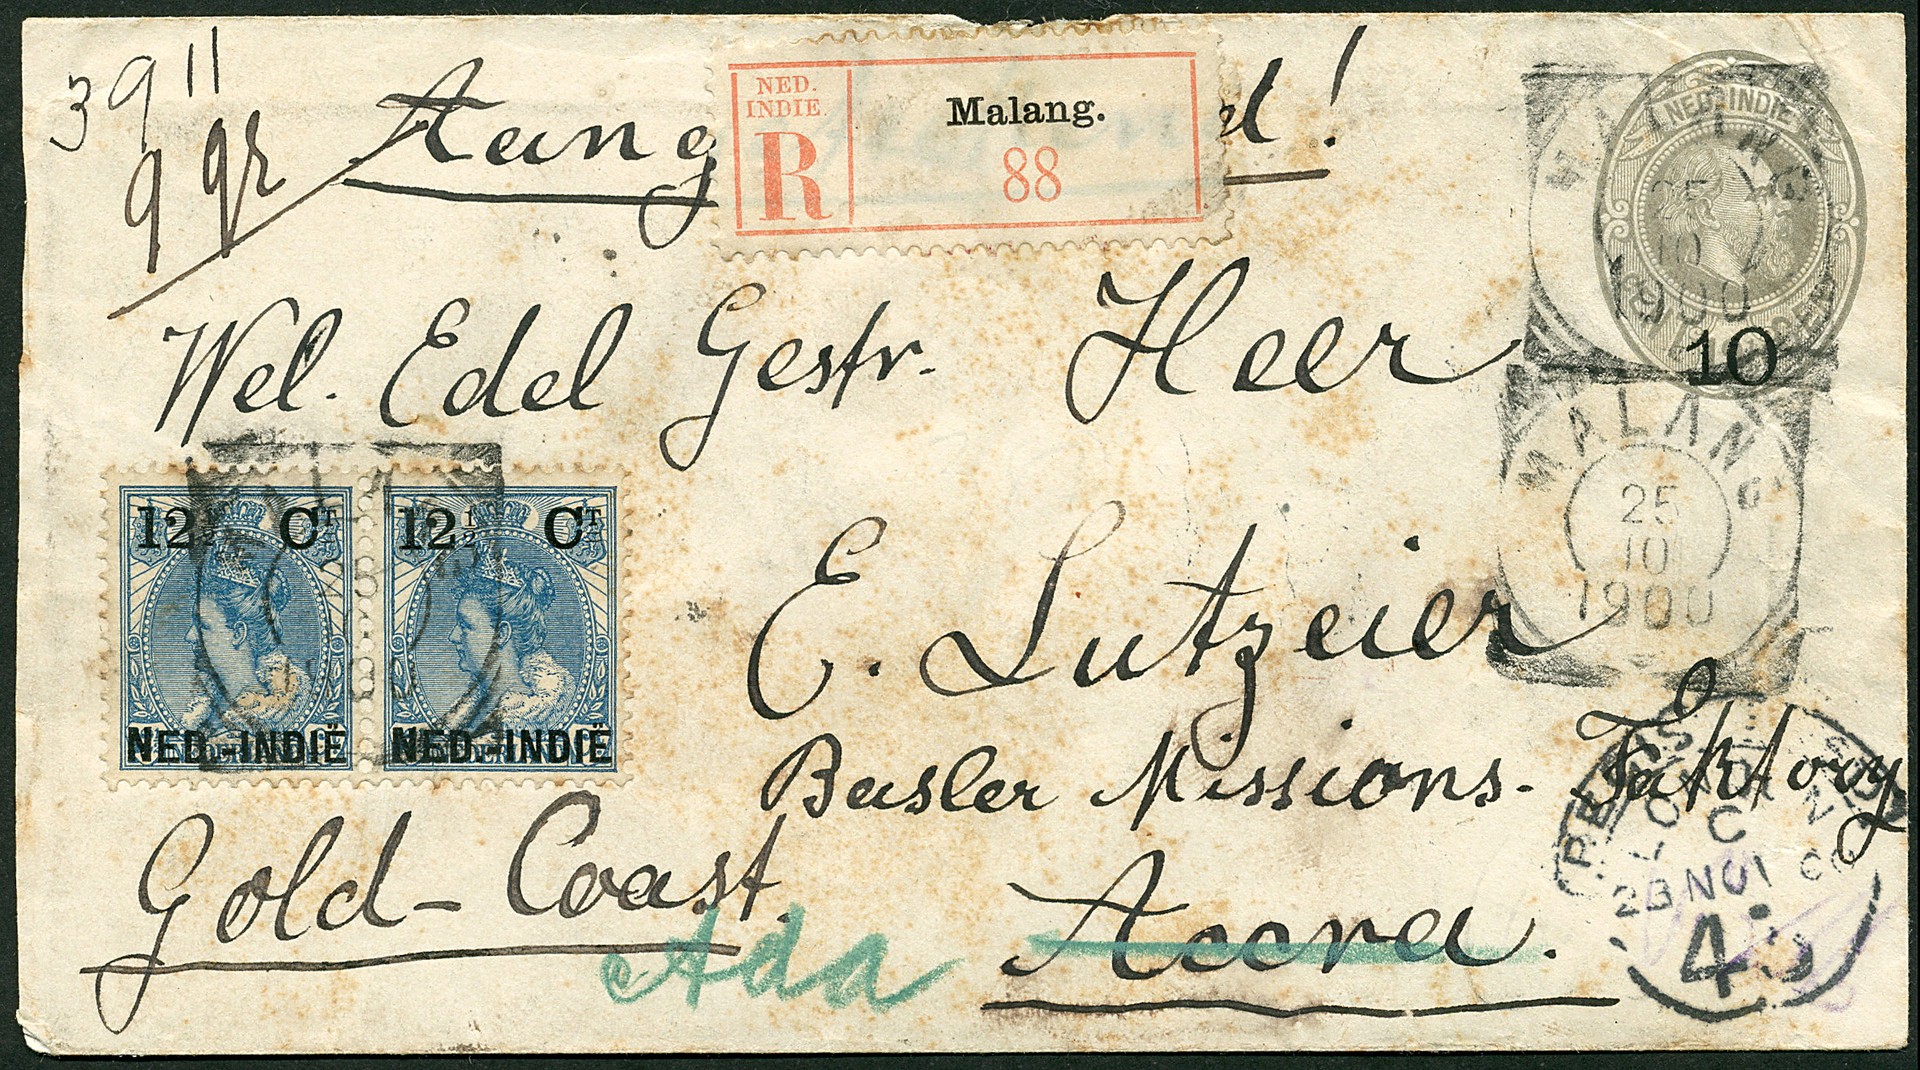 39 11
9 gr
Aang d!
NED. INDIE.
R
Malang.
88
NED-INDIE
10
MALANG
25
10
1900
MALANG
25
10
1900
Wel. Edel Gestr. Heer
12½ CT
NED.-INDIË
12½ CT
NED.-INDIË
E. Lutzeier
Basler Missions-Faktory
Gold-Coast.
Accra.
Ada
REGISTERED
LONDON
C
28 NO